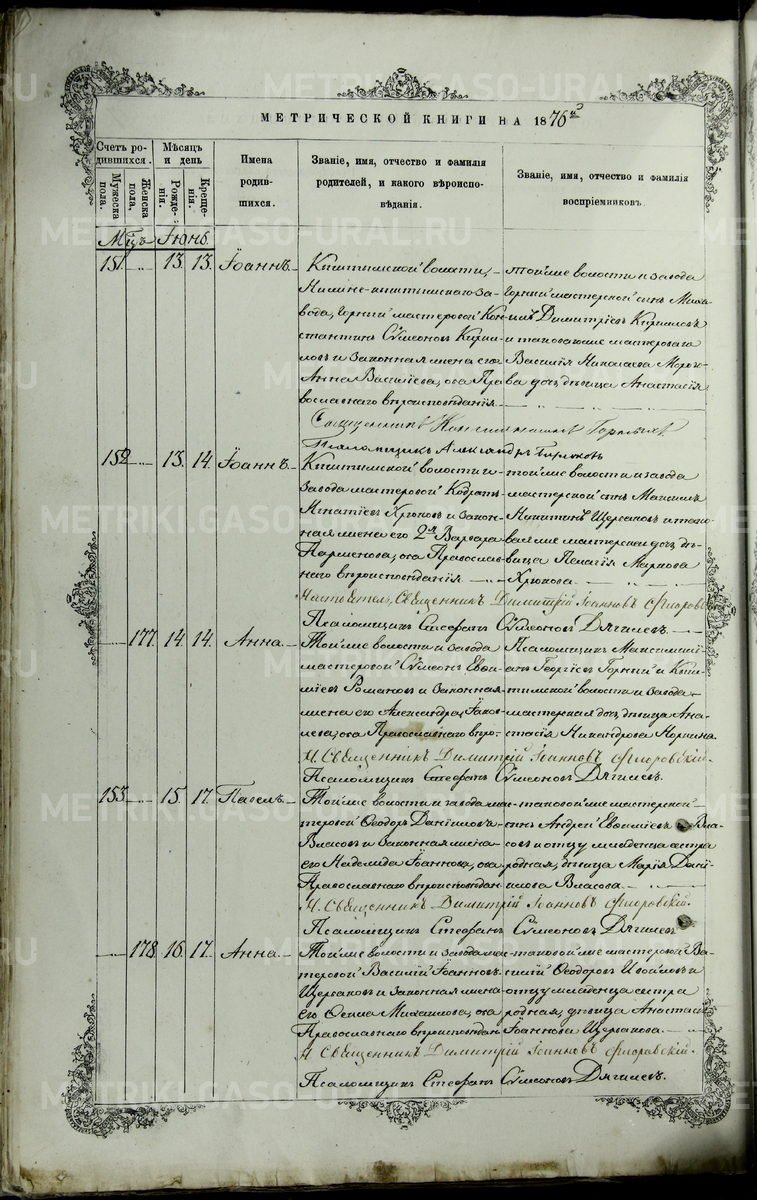 МЕТРИЧЕСКОЙ КНИГИ НА 1876й
Счетъ родившихся.
Мужеска пола.
Женска пола.
Мѣсяцъ и день
Рожденія.
Крещенія.
Имена родившихся.
Званіе, имя, отчество и фамилія родителей, и какого вѣроисповѣданія.
Званіе, имя, отчество и фамилія воспріемниковъ.
Мцъ Іюнь.
151. 13. 13. Іоаннъ.
Кыштымской волости,
Нижне-Кыштымскаго за-
вода, Горный мастеровой Кон-
стантинъ Сѵмеоновъ Кирил-
ловъ и законная жена его
Анна Василіева, оба Пра
вославнаго вѣроисповѣданія
Той же волости и завода
Горный мастерской сынъ Миха-
илъ Димитріевъ Кирилловъ
и таковаго же мастероваго
Василія Николаева Мороз-
ва дочь, дѣвица Анастасія
Священникъ
Псаломщикъ Александръ Бирюковъ
152 13. 14. Іоаннъ
Кыштымской волости и
завода мастеровой Кодратъ
Игнатіевъ Хрюковъ и закон-
ная жена его 2я Варвара
Парменова, оба Православ-
наго вѣроисповѣданія
той же волости и завода
мастерской сынъ Максимъ
Никитинъ Щербаковъ и тако-
вая же мастерская дочь дѣ-
вица Пелагія Маркова
Хрюкова.
Настоятель, Священникъ Димитрій Іоанновъ Флоровскій
Псаломщикъ Стефанъ Сѵмеоновъ Дягилевъ.
177. 14. 14. Анна.
Той же волости и завода
мастеровой Сѵмеонъ Евѳи-
міевъ Романовъ и законная
жена его Александра Іаков-
лева, оба Православнаго вѣро-
Псаломщикъ Максимилі-
анъ Георгіевъ Горный и Кыш-
тымской волости и завода
мастерская дочь, дѣвица Ана-
стасія Никандрова Норкина.
Н. Священникъ Димитрій Іоанновъ Флоровскій.
Псаломщикъ Стефанъ Сѵмеоновъ Дягилевъ.
153. 15. 17. Павелъ.
Той же волости и завода мас-
теровой Ѳеодоръ Даніиловъ
Власовъ и законная жена
его Надежда Іоаннова, оба
Православнаго вѣроисповѣдан
таковой же мастерской
сынъ Андрей Евѳиміевъ Вла-
совъ и отцу младенца сестра
родная, дѣвица Марія Дані-
илова Власова.
Н. Священникъ Димитрій Іоанновъ Флоровскій.
Псаломщикъ Стефанъ Сѵмеоновъ Дягилевъ
178. 16. 17. Анна.
Той же волости и завода мас-
теровой Василій Іоанновъ
Щербаковъ и законная жена
его Ѳекла Михаилова, оба
Православнаго вѣроисповѣдан
таковой же мастеровой Ва-
силій Ѳеодоровъ Ивойловъ и
отцу младенца сестра
родная, дѣвица Анастасія
Іоаннова Щербакова.
Н. Священникъ Димитрій Іоанновъ Флоровскій.
Псаломщикъ Стефанъ Сѵмеоновъ Дягилевъ.
METRIKI.GASO-URAL.RU